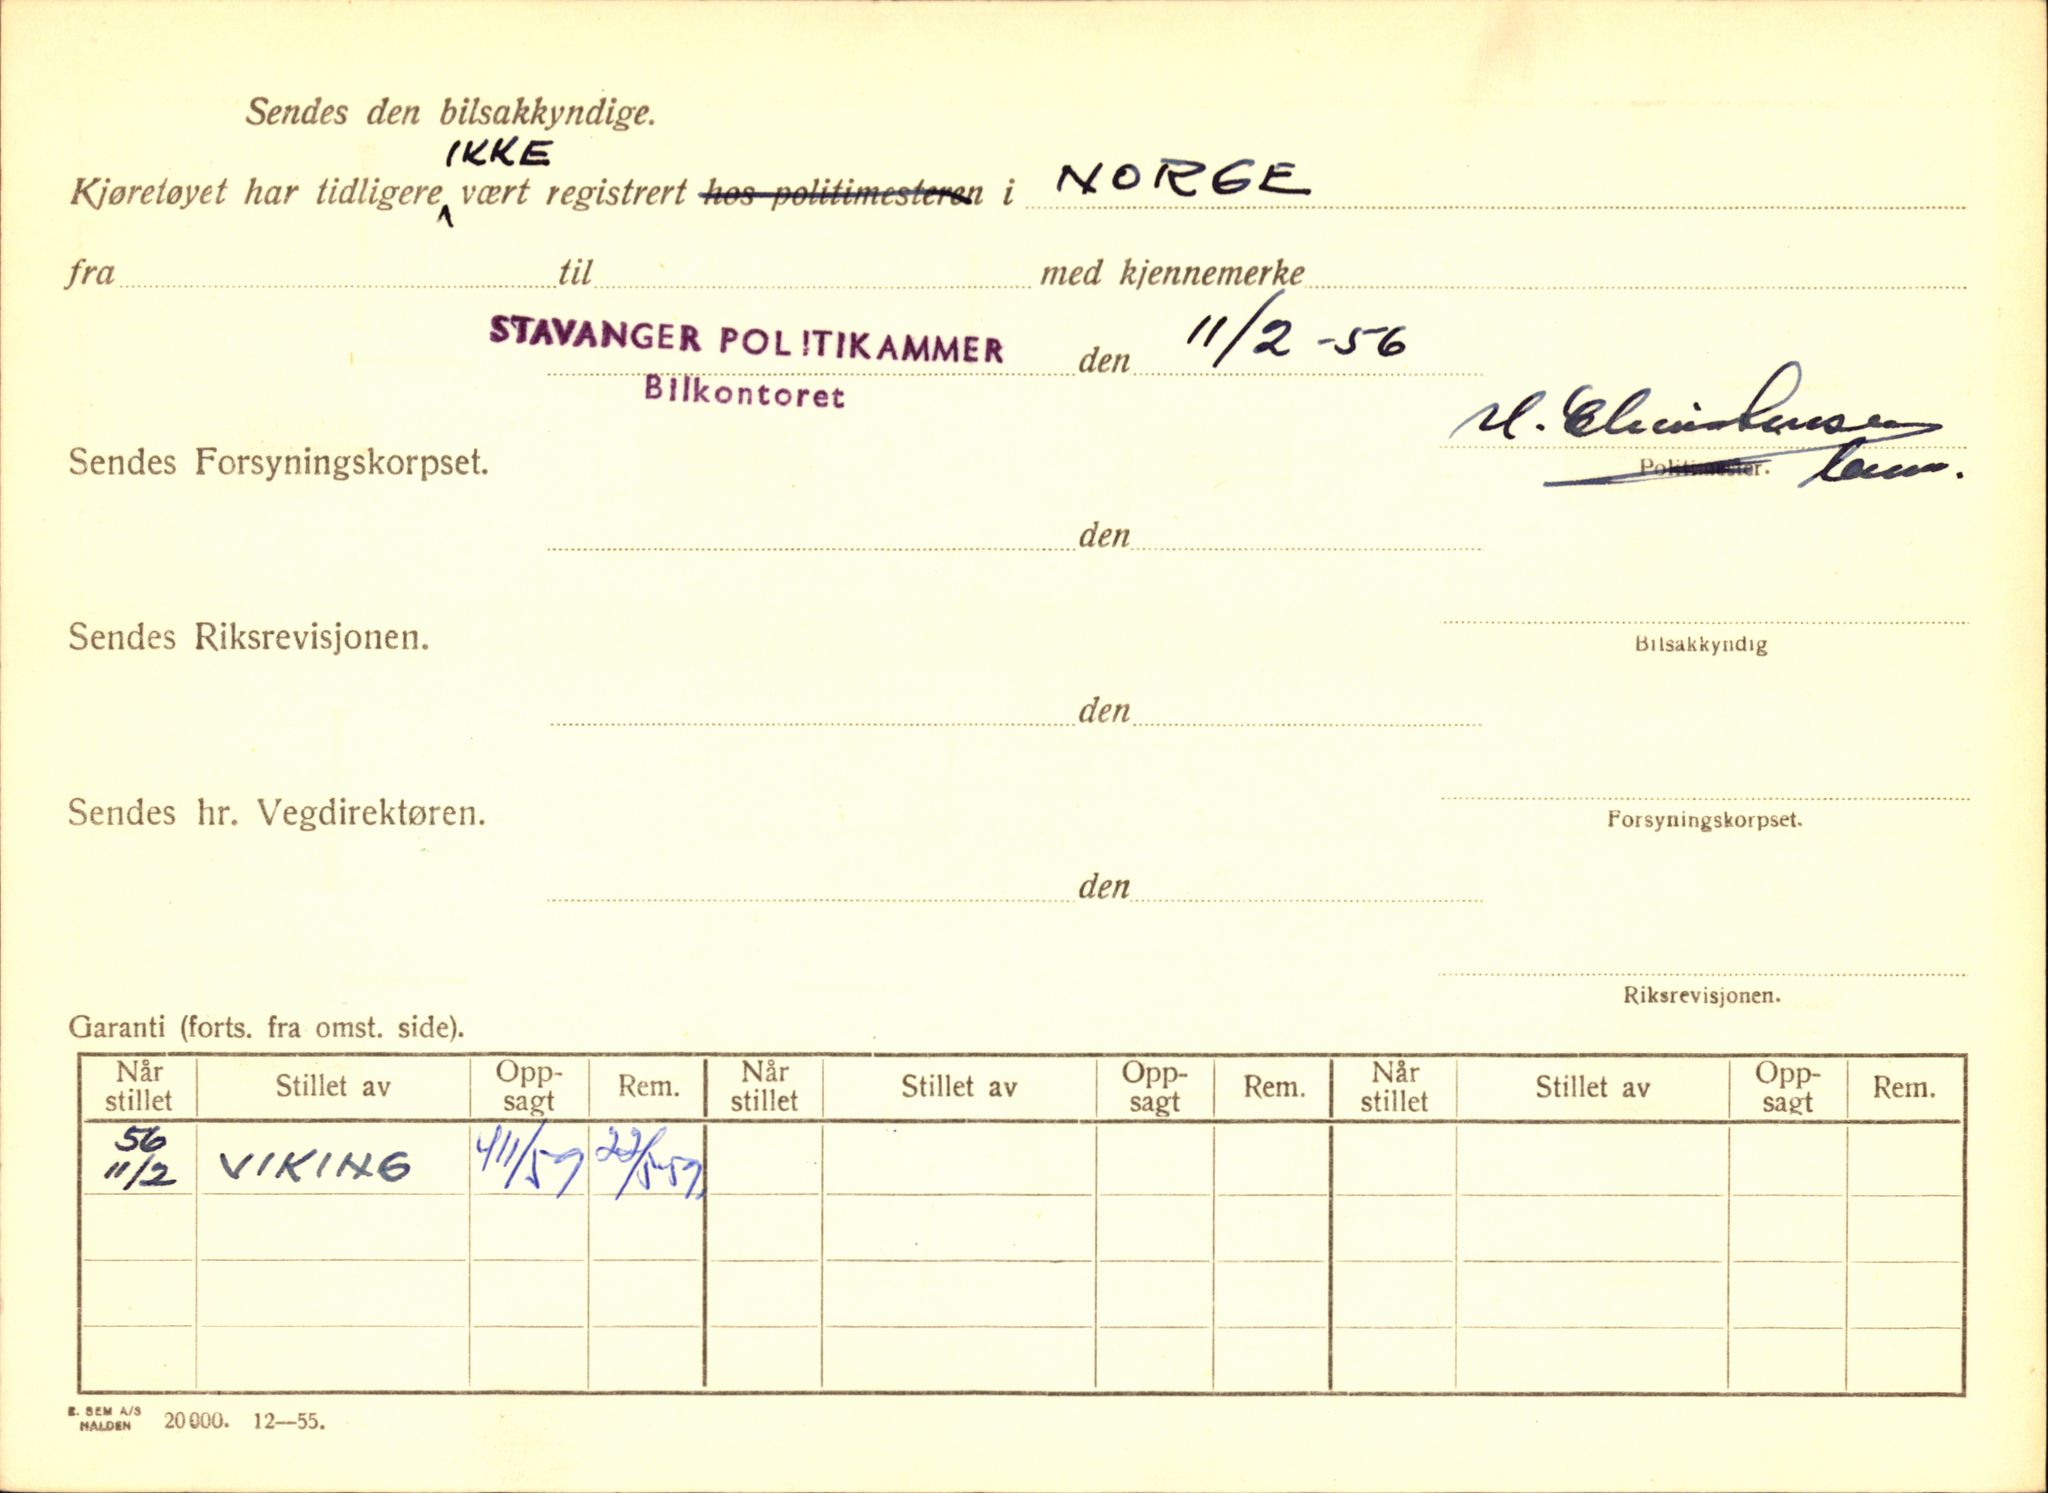 Sendes den bilsakkyndige.
IKKE
Kjøretøyet har tidligere ^ vært registrert hos politimesteren i NORGE
fra til med kjennemerke
STAVANGER POLITIKAMMER den 11/2 -56
Bilkontoret
H. Christensen
Sendes Forsyningskorpset. Politimester.
den
Sendes Riksrevisjonen. Bilsakkyndig
den
Sendes hr. Vegdirektøren. Forsyningskorpset.
den
Riksrevisjonen.
Garanti (forts. fra omst. side).
Når stillet Stillet av Opp-sagt Rem. Når stillet Stillet av Opp-sagt Rem. Når stillet Stillet av Opp-sagt Rem.
56
11/2 VIKING 22/5-59
E. SEM A/S
HALDEN 20000. 12—55.